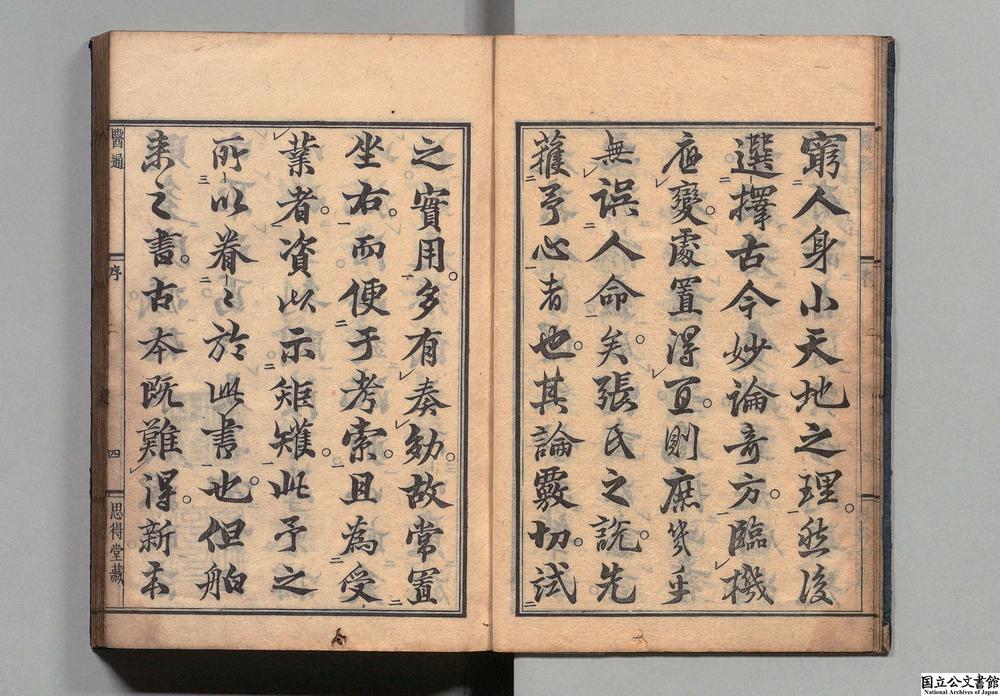 窮人身小天地之理。然後
選擇古今妙論奇方。臨機
應變。處置得宜。則庶幾乎
無誤人命矣。張氏之說。先
獲予心者也。其論覈切。試
之實用。多有奏効。故常置
坐右。而便于考索。且為受
業者。資以示矩矱。此予之
所以眷々於此書也。但舶
来之書。古本既難得。新本
醫通
序
四
思得堂藏
国立公文書館
National Archives of Japan